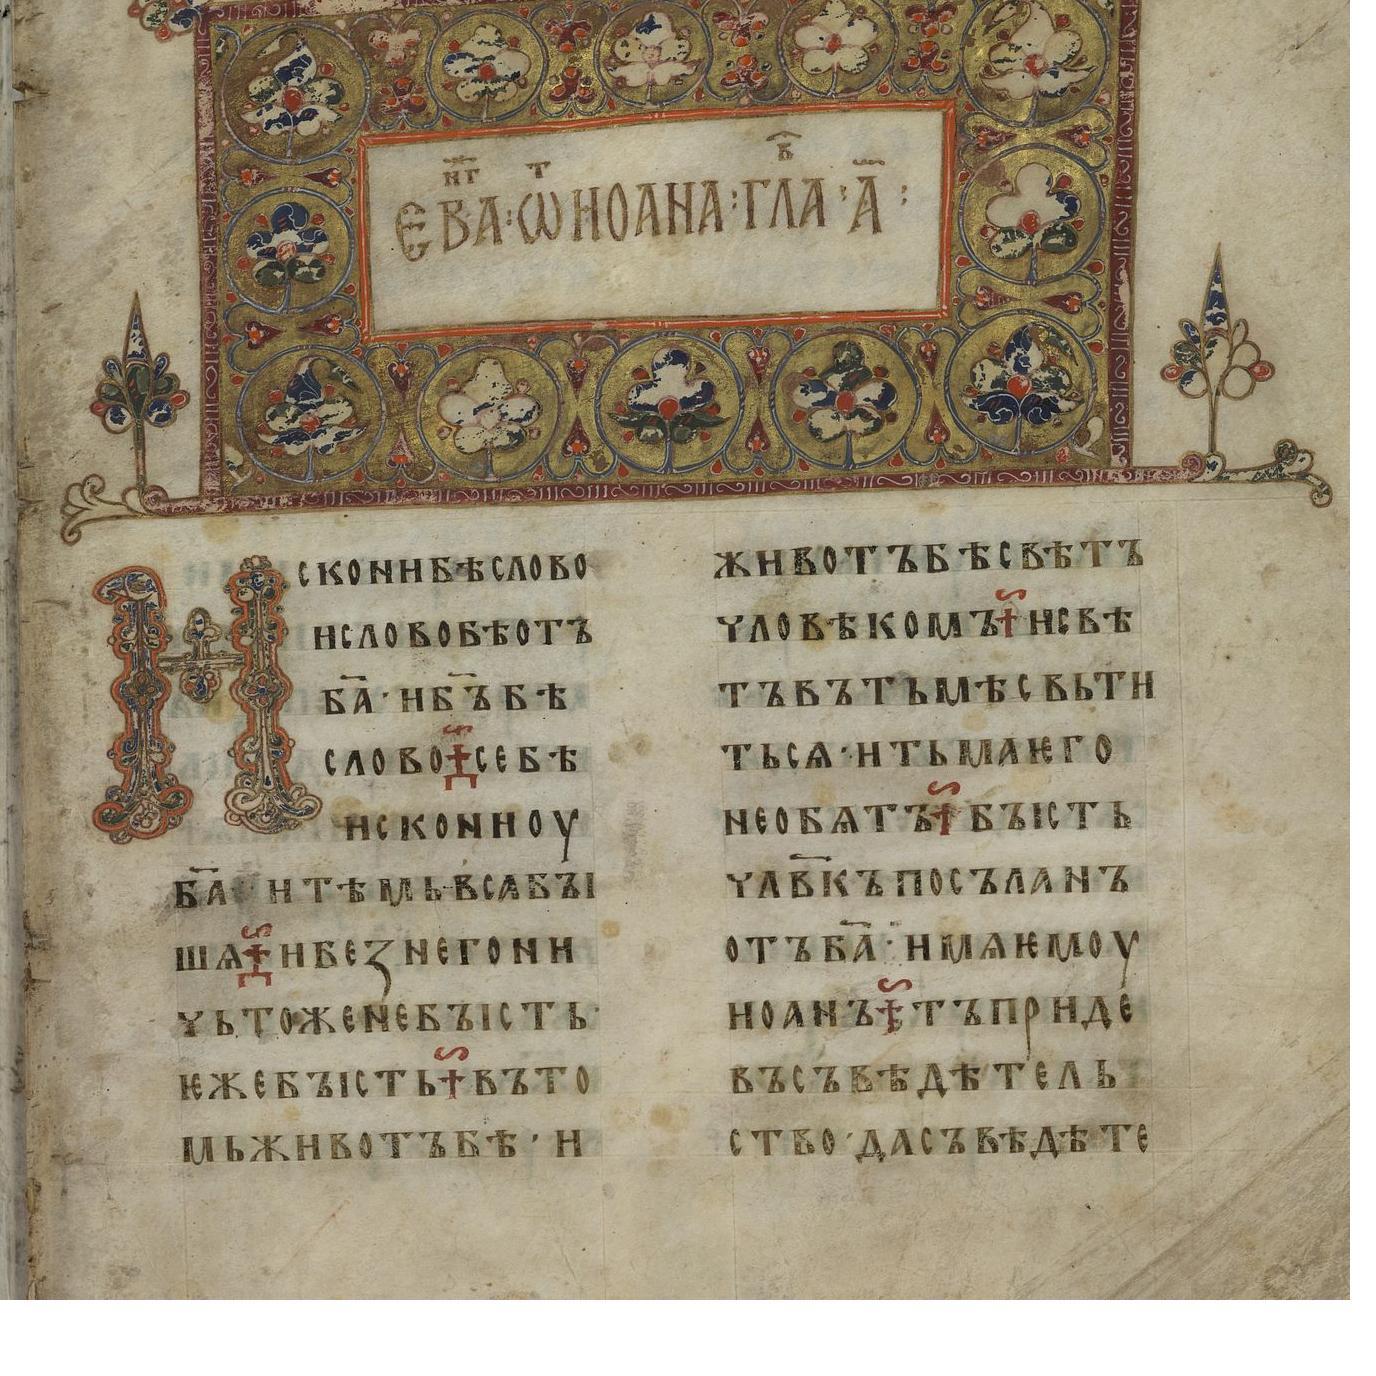 ЕВ҃АНГ : Ѿ ИОАНА : ГЛ҃ВА : А҃ :
Искони бѣ слово
и слово бѣ отъ
б҃а · и б҃ъ бѣ
слово се бѣ
искони оу
б҃а · и тѣмь вся бꙑ
шѧ и без него ни
чьтоже не бꙑсть ·
ѥже бꙑсть въ то
мь животъ бѣ · и
животъ бѣ свѣтъ
чловѣкомъ и свѣ
тъ въ тьмѣ свьти
тьсѧ · и тьма ѥго
не обѧтъ бꙑсть
чл҃вкъ посъланъ
отъ б҃а · имѧ ѥмоу
иоанъ тъ приде
въ съвѣдѣтель
ство · да съвѣдѣте